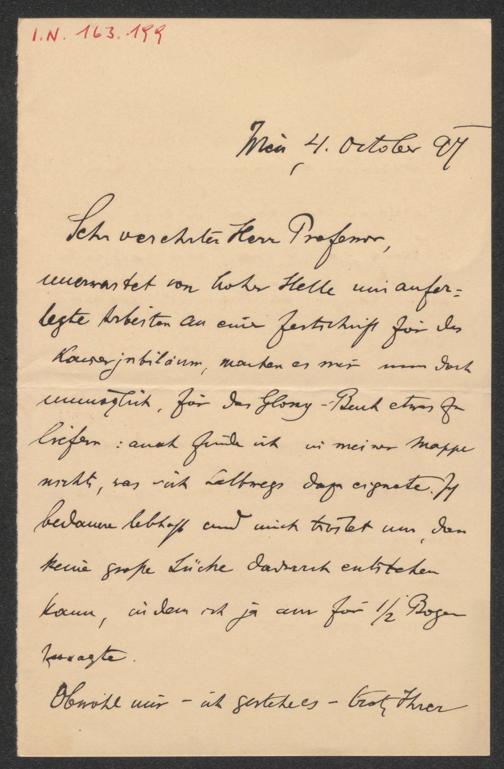 I.N. 163.199
Wien, 4. October 97
Sehr verehrter Herr Professor,
unerwartet von hoher Stelle mir aufer=
legte Arbeiten an einer Festschrift für das
Kaiserjubiläum, machen es mir nun doch
unmöglich, für das Glossy-Buch etwas zu
liefern: auch finde ich in meiner Mappe
nichts, was sich halbwegs dazu eignete. Ich
bedaure lebhaft und mich tröstet nur, dass
keine große Lücke dadurch entstehen
kann, indem ich ja nur für 1/2 Bogen
zusagte.
Obwohl mir - ich gestehe es - trotz Ihrer